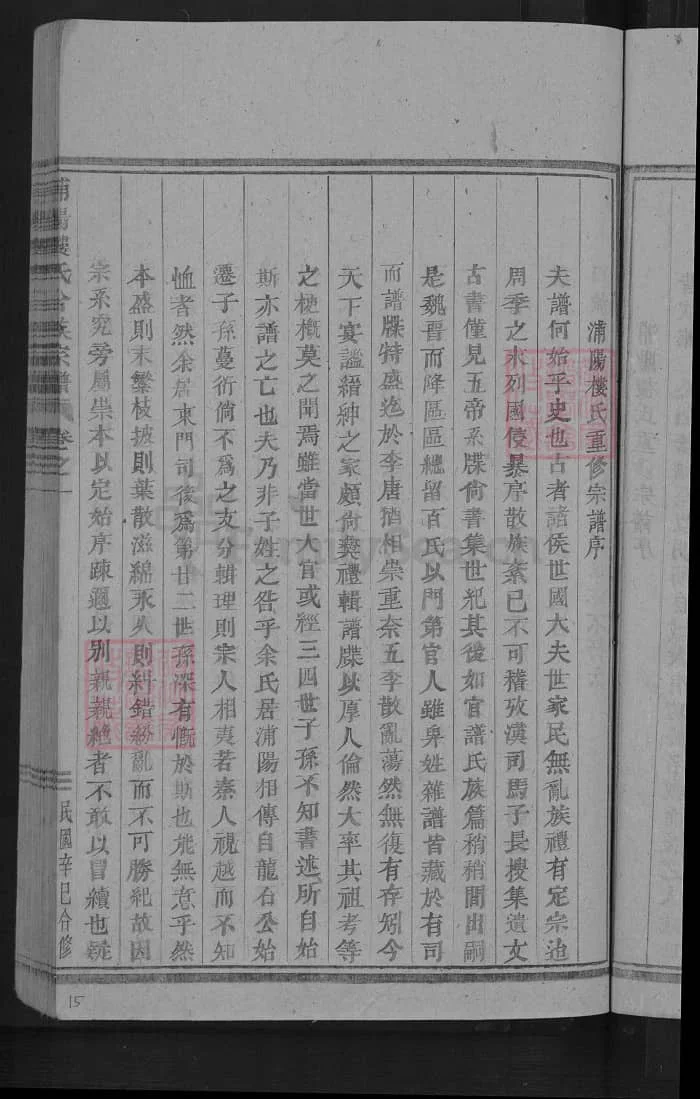 浦陽樓氏重修宗譜序
夫譜何始乎史也古者諸侯世國大夫世家民無亂族禮有定宗迨
周季之末列國侵暴序散族紊已不可稽攷漢司馬子長搜集遺文
古書僅見五帝系牒尚書集世紀其後如官譜氏族篇稍稍間出嗣
是魏晋而降區區總留百氏以門第官人雖卑姓雜譜皆藏於有司
而譜牒特盛迄於李唐猶相崇重奈五季散亂蕩然無復有存矧今
天下宴謐縉紳之家頗尙奬禮輯譜牒以厚人倫然大率其祖考等
之梗概莫之聞焉雖當世大官或經三四世子孫不知書述所自始
斯亦譜之亡也夫乃非子姓之咎乎余氏居浦陽相傳自龍石公始
遷子孫蔓衍倘不爲之支分輯理則宗人相夷若秦人視越而不知
恤者然余居東門司後爲第廿二世孫深有慨於斯也能無意乎然
本盛則末繁枝披則葉散滋綿永久則糾錯紛亂而不可勝紀故因
宗系究旁屬崇本以定始序疎邇以別親親絕者不敢以冒續也疑
浦陽樓氏合族宗譜 卷之一
民國辛巳合修
15